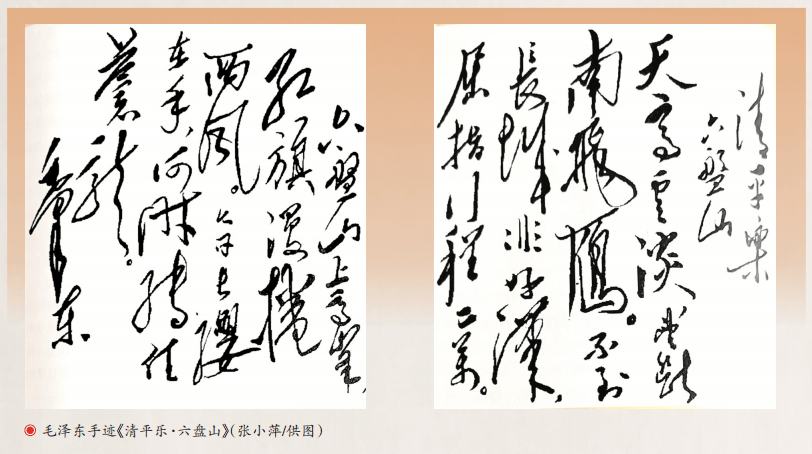 清平樂
六盤山
天高雲淡望斷
南飛鴈。不到
長城非好漢,
屈指行程二萬。
六盤山上高峯,
紅旗漫捲
西風。今日長纓
在手,何時縛住
蒼龍。
毛澤東
毛泽东手迹《清平乐·六盘山》(张小萍/供图)